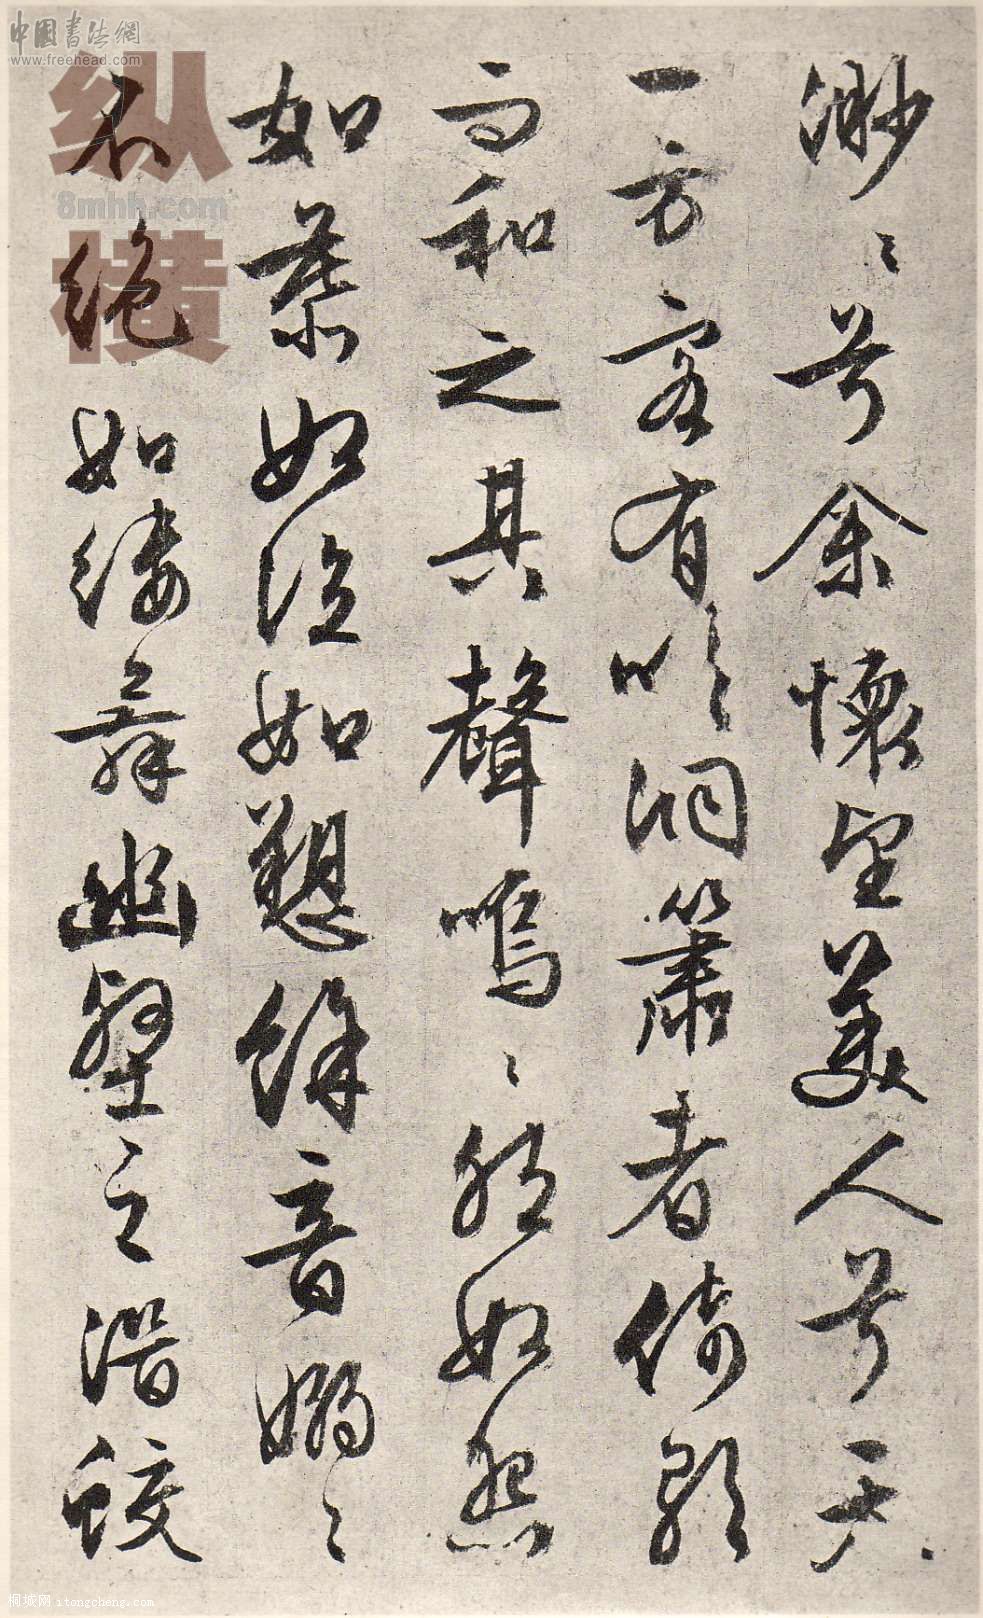 中国書法網
www.freehead.com
渺〻兮余懷望美人兮天
一方客有吹洞簫者倚歌
而和之其聲嗚〻然如怨
如慕如泣如愬餘音嫋〻
不絕如縷舞幽壑之潛蛟
纵横
8mhh.com
桐城网 itongcheng.com